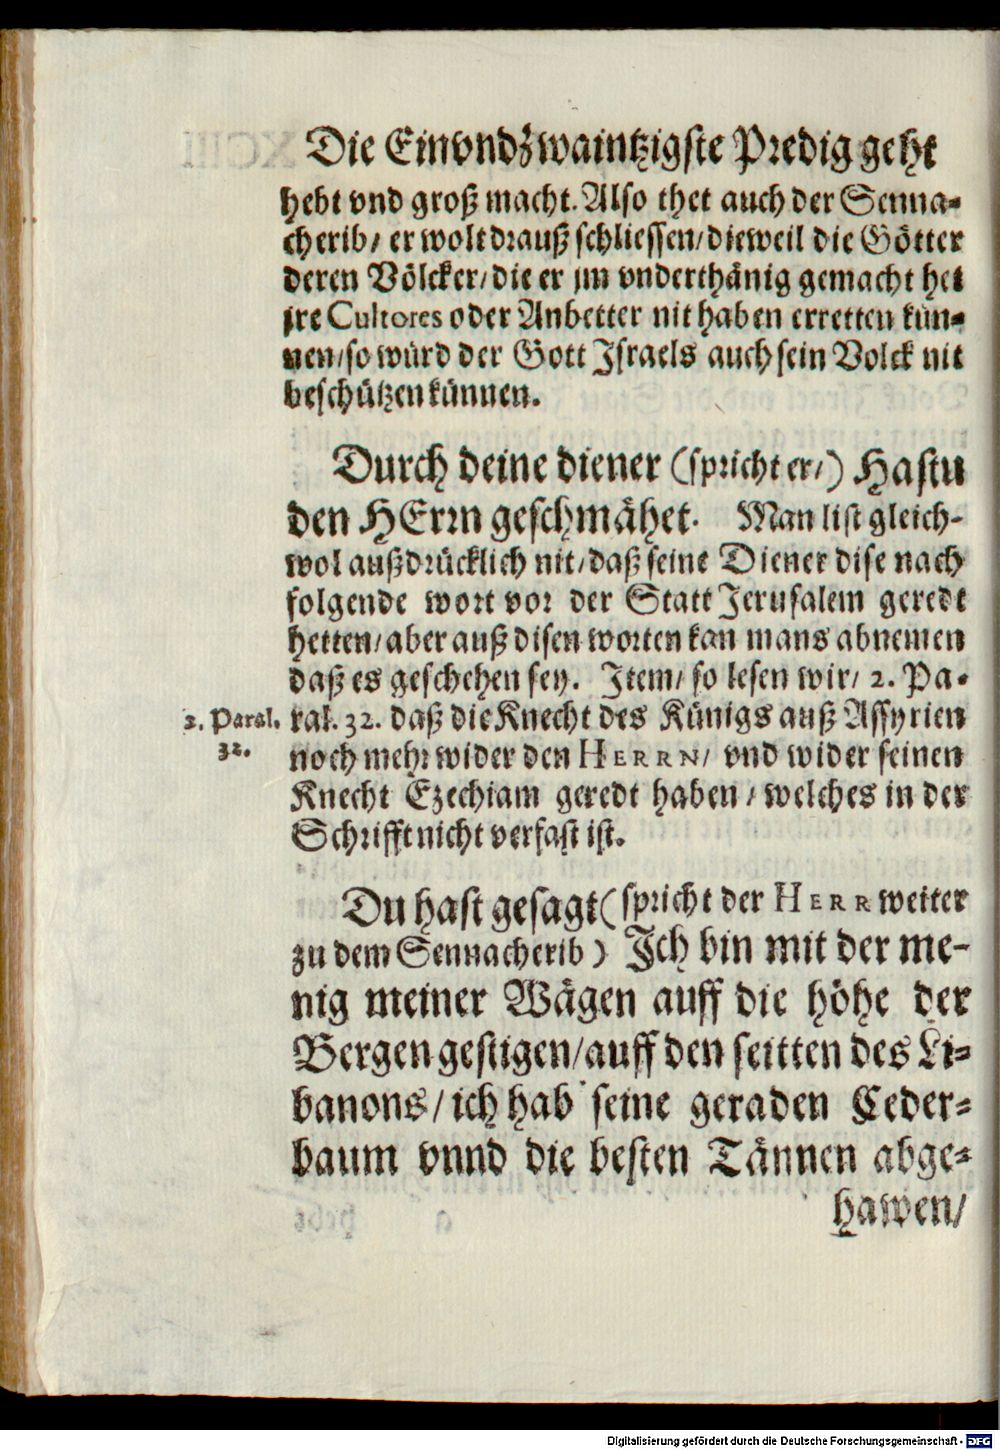 Die EinvndZwaintzigste Predig geht
hebt vnd groß macht. Also thet auch der Senna-
cherib/ er wolt drauß schliessen/ dieweil die Götter
deren Völcker/ die er jm vnderthänig gemacht het
jre Cultores oder Anbetter nit haben erretten kün-
nen/ so würd der Gott Israels auch sein Volck nit
beschützen künnen.
Durch deine diener (spricht er/) Hastu
den HErrn geschmähet. Man list gleich-
wol außdrücklich nit/ daß seine Diener dise nach
folgende wort vor der Statt Jerusalem geredt
hetten/ aber auß disen worten kan mans abnemen
daß es geschehen sey. Item/ so lesen wir/ 2. Pa-
2. Paral. ral. 32. daß die Knecht des Künigs auß Assyrien
32. noch mehr wider den HERRN/ vnd wider seinen
Knecht Ezechiam geredt haben/ welches in der
Schrifft nicht verfast ist.
Du hast gesagt (spricht der HERR weiter
zu dem Sennacherib) Ich bin mit der me-
nig meiner Wägen auff die höhe der
Bergen gestigen/ auff den seitten des Li-
banons/ ich hab seine geraden Ceder-
baum vnnd die besten Tännen abge-
hawen/
Digitalisierung gefördert durch die Deutsche Forschungsgemeinschaft - DFG